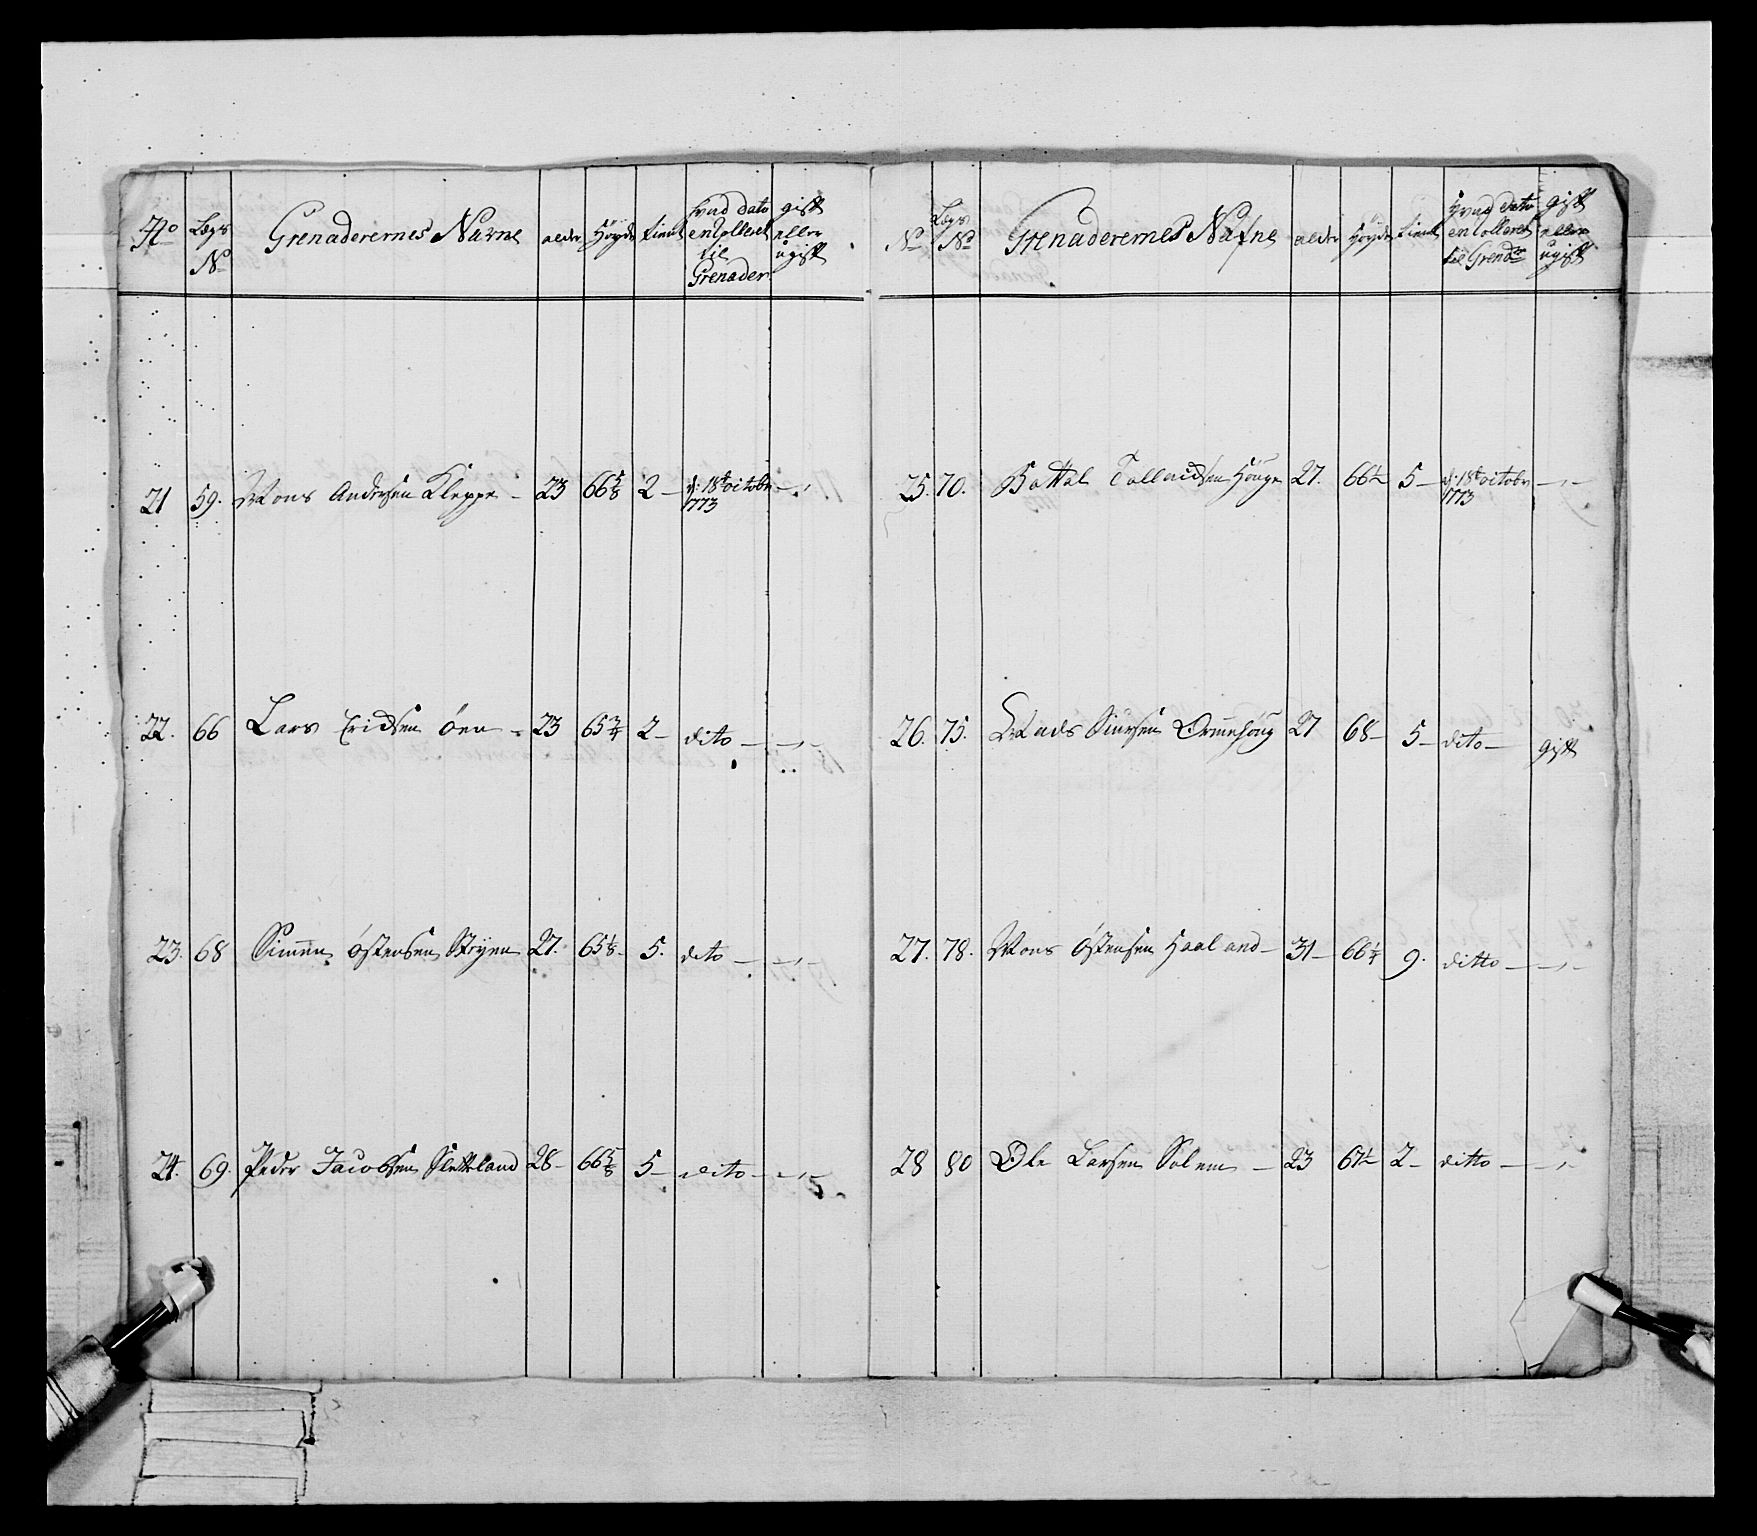 No Legs No Grenaderernes Navne alder Høyde tient hvad dato enrolleret til Grenader gift eller ugift
21 59. Mons Andersen Kleppe - 23 66 5/8 2 - d: 18de octobr 1773 - „ -
22. 66 Lars Ericksen Öen - 23 65 3/4 2 - dito - „ -
23. 68 Simen Østensen 27. 65 1/8 - 5. dito - „ -
24. 69. Peder Jacobsen Sletteland 28 - 66 5/8 5 - dito - „ -
No Legs No Grenaderernes Nafne alder Høyde tient Hvad dato enrolleret til Grendr gift eller ugift
25. 70. Tollevdsen Houge 27. 66 1/2 5 - d: 18de octobr 1773 - „ -
26. 75. Mads Siursen 27 68 - 5 - dito - gift
27. 78. Mons Østensen Haaland - 31 - 66 1/4 9. ditto - „ -
28 80 Ole Larsen Solem - 23 67 1/2 2 - ditto - „ -